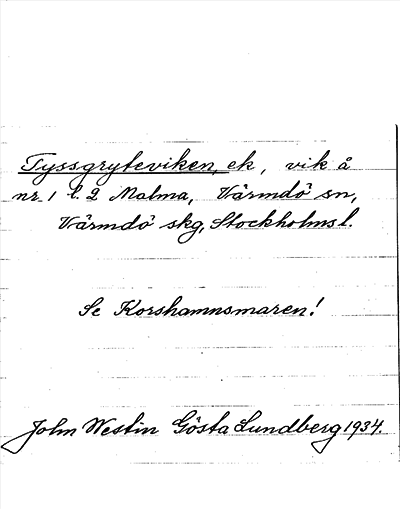 Tyssgryteviken, ek, vik å
nr 1 l. 2 Malma, Värmdö sn,
Värmdö skg, Stockholms l.
Se Korshamnsmaren!
John Westin Gösta Lundberg 1934.